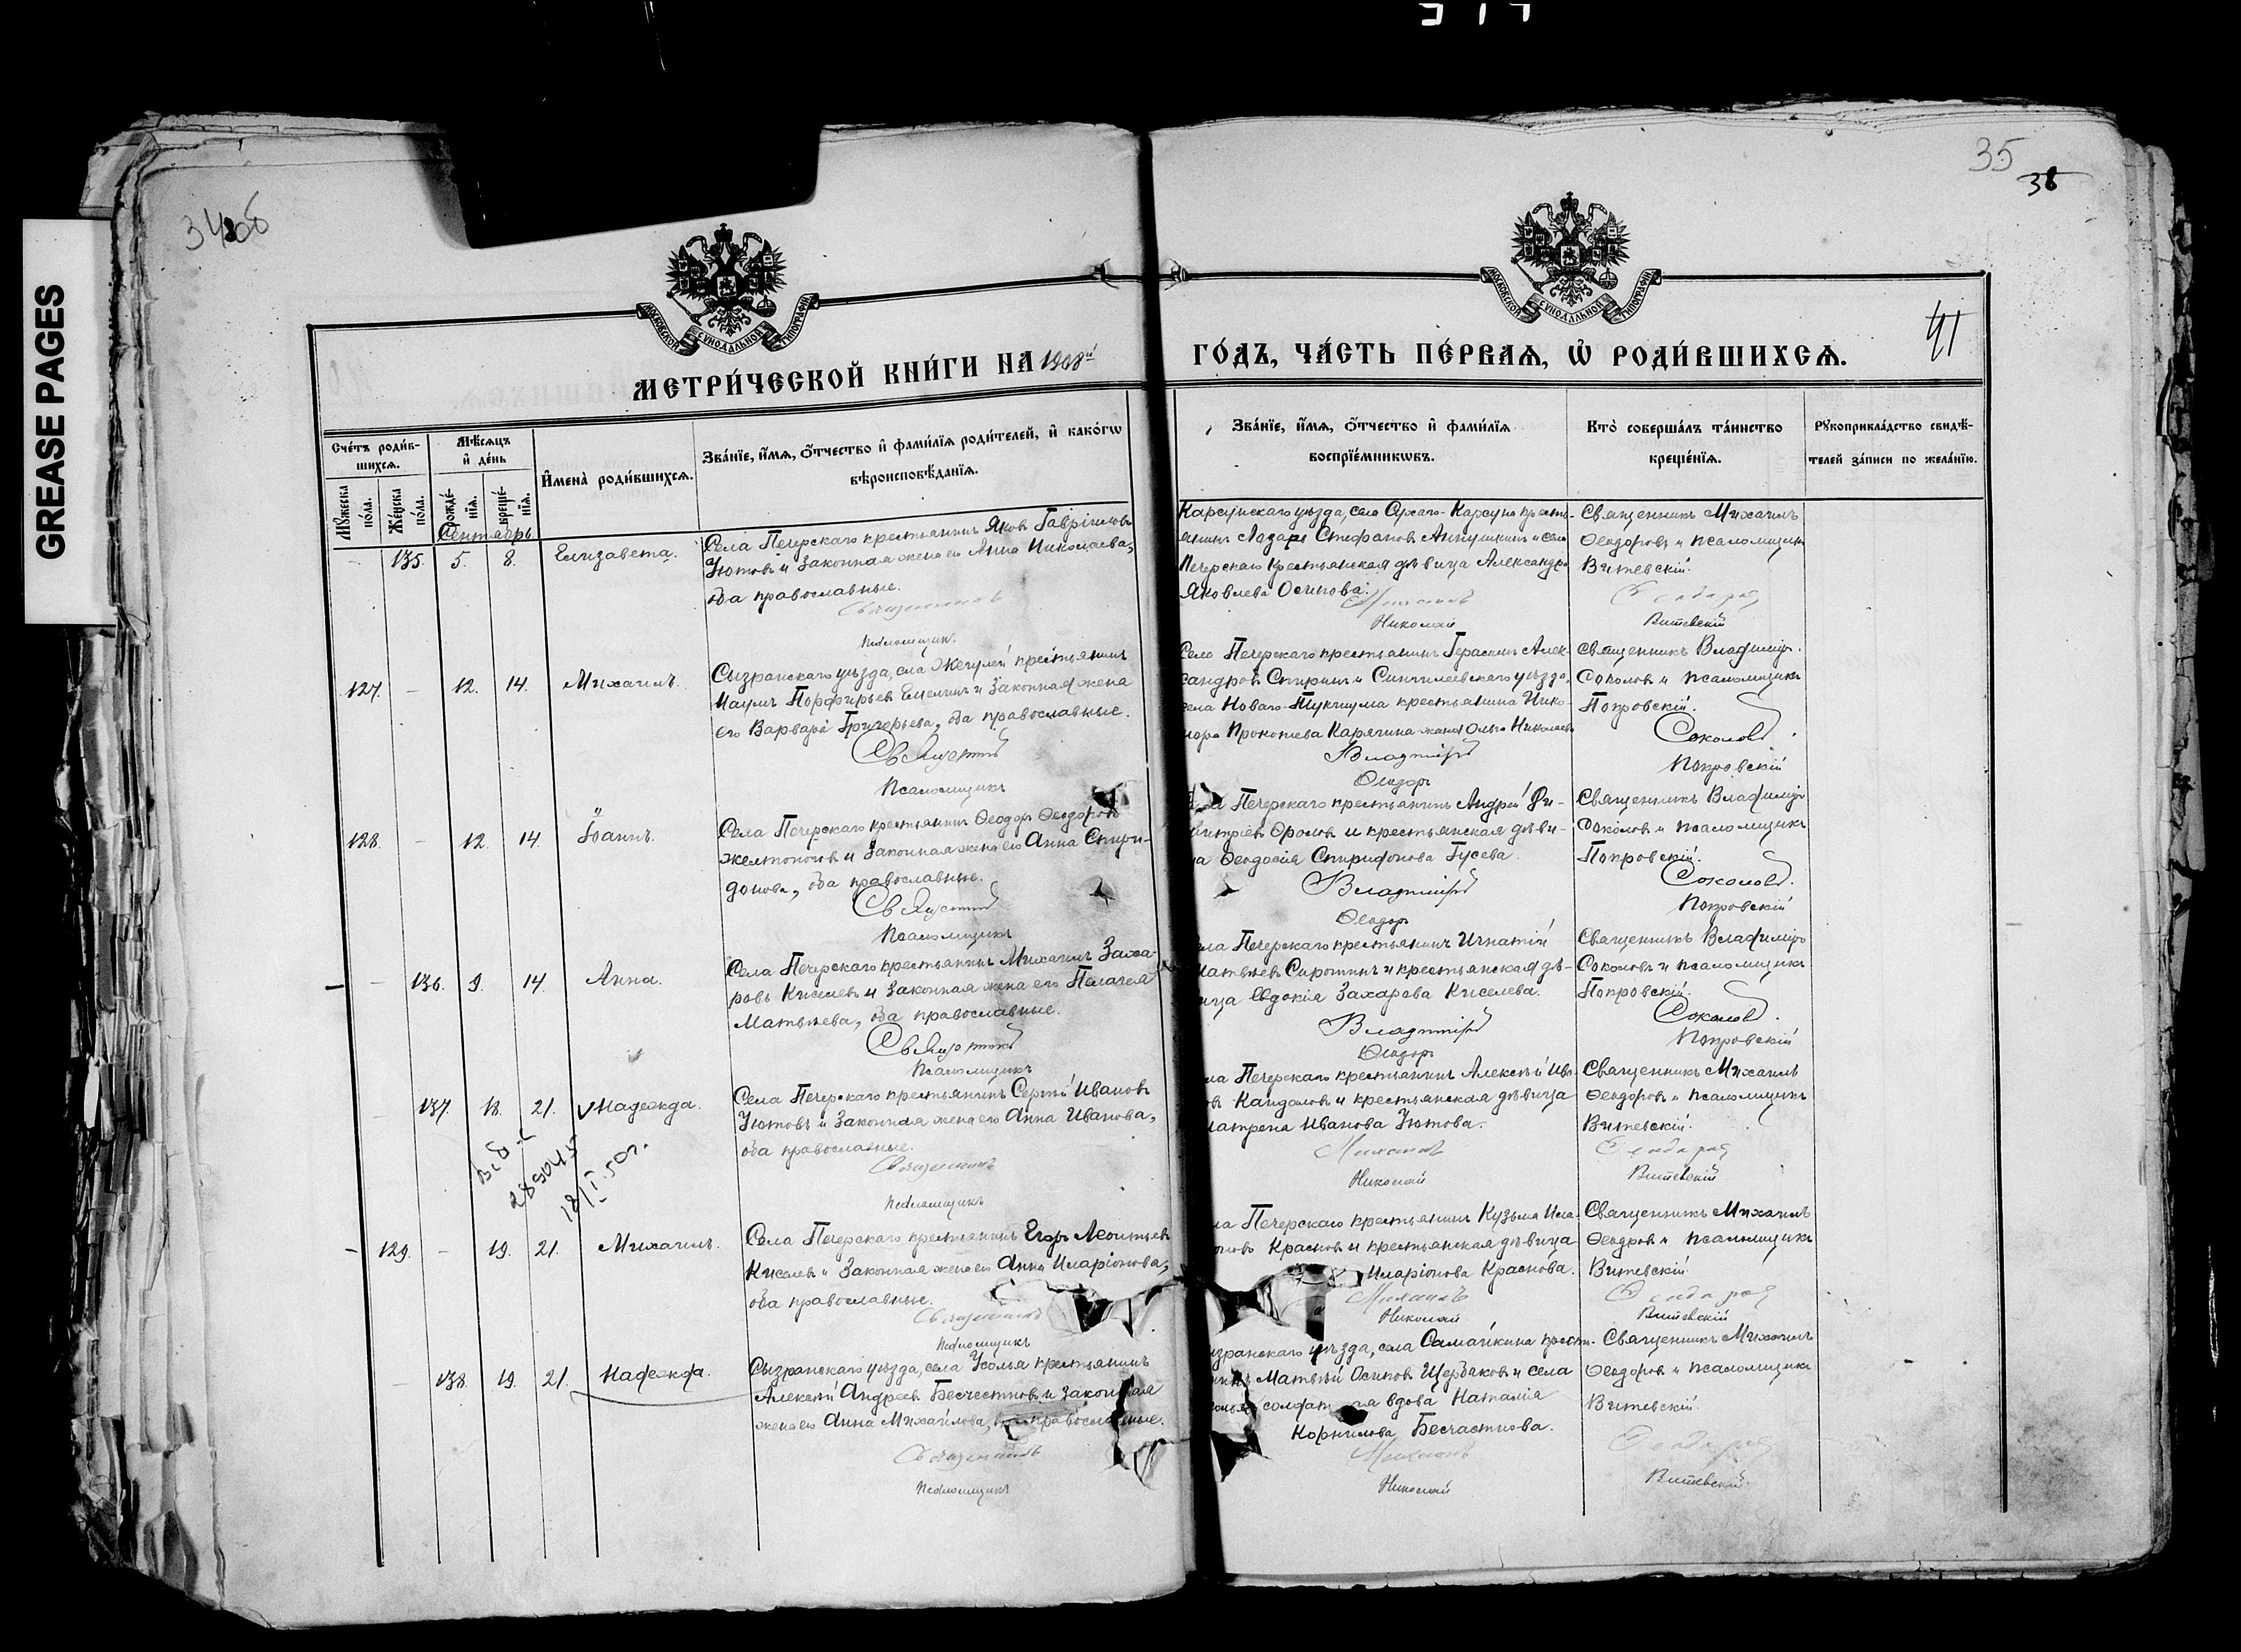 GREASE PAGES
34об
35
38
МОСКОВСКОЙ СѴНОДАЛЬНОЙ ТИПОГРАФІИ
МОСКОВСКОЙ СѴНОДАЛЬНОЙ ТИПОГРАФІИ
41
МЕТРИ́ЧЕСКОЙ КНИ́ГИ НА 1908й ГО́ДЪ, ЧА́СТЬ ПЕ́РВАѦ, Ѡ РОДИ́ВШИХСѦ.
Сче́тъ роди́в-
шихсѧ.
Мꙋ́жеска по́ла.
Же́нска по́ла.
Мѣ́сѧцъ и҆ де́нь
рожде́-нїѧ.
креще́-нїѧ.
И҆мена̀ роди́вшихсѧ.
Зва́нїе, и҆́мѧ, ѻ҆́тчество и҆ фами́лїѧ роди́телей, и҆ како́гѡ
вѣроисповѣ́данїѧ.
Зва́нїе, и҆́мѧ, ѻ҆́тчество и҆ фами́лїѧ
воспрїе́мникѡвъ.
Кто̀ соверша́лъ та́инство
креще́нїѧ.
Рꙋкоприкла́дство свидѣ́-
телей за́писи по жела́нїю.
Сентябрь
- 135. 5. 8. Елизавета.
Села Печерскаго крестьянинъ Яковъ Гавріиловъ
Зютовъ и законная жена его Анна Николаева,
оба православные.
Священникъ
Псаломщикъ
Карсунскаго уѣзда, села Сухаго-Карсуна кресть-
янинъ Лазарь Стефановъ Аннушкинъ и села
Печерскаго крестьянская дѣвица Александра
Яковлева Осипова.
Михаилъ
Николай
Священникъ Михаилъ
Ѳеодоровъ и псаломщикъ
Витевскій.
Ѳеодоровъ
Витевскій
127. - 12. 14. Михаилъ.
Сызранскаго уѣзда, села Жегулей крестьянинъ
Наумъ Порфирьевъ Емелинъ и законная жена
его Варвара Григорьева, оба православные.
Священникъ
Псаломщикъ
Села Печерскаго крестьянинъ Герасимъ Алек-
сандровъ Спиринъ и Сингилеевскаго уѣзда,
села Новаго-Тукшума крестьянина Нико-
нора Прокопьева Карягина жена Ольга Николаева
Владиміръ
Ѳеодоръ
Священникъ Владиміръ
Соколовъ и псаломщикъ
Покровскій.
Соколовъ.
Покровскій
128. - 12. 14. Іоаннъ.
Села Печерскаго крестьянинъ Ѳеодоръ Ѳеодоровъ
и законная жена его Анна Спири-
донова, оба православные.
Священникъ
Псаломщикъ
Села Печерскаго крестьянинъ Андрей Ди-
митріевъ Фроловъ и крестьянская дѣви-
ца Ѳеодосія Спиридонова Гусева.
Владиміръ
Ѳеодоръ
Священникъ Владиміръ
Соколовъ и псаломщикъ
Покровскій.
Соколовъ.
Покровскій
- 136. 9. 14. Анна.
Села Печерскаго крестьянинъ Михаилъ Заха-
ровъ Киселевъ и законная жена его Пелагея
Матвѣева, оба православные.
Священникъ
Псаломщикъ
ела Печерскаго крестьянинъ Игнатій
Матвѣевъ Сиротинъ и крестьянская дѣ-
вица Евдокія Захарова Киселева.
Владиміръ
Ѳеодоръ
Священникъ Владиміръ
Соколовъ и псаломщикъ
Покровскій.
Соколовъ.
Покровскій
- 137. 18. 21. Надежда.
Села Печерскаго крестьянинъ Сергѣй Ивановъ
Зютовъ и законная жена его Анна Иванова,
оба православные.
Священникъ
Псаломщикъ
ла Печерскаго крестьянинъ Алексѣй Ива-
овъ Кандаловъ и крестьянская дѣвица
Матрена Иванова Зютова.
Михаилъ
Николай
Священникъ Михаилъ
Ѳеодоровъ и псаломщикъ
Витевскій.
Ѳеодоровъ
Витевскій
289045
18/I.50г.
129. - 19. 21. Михаилъ.
Села Печерскаго крестьянинъ Егоръ Леонтьевъ
Киселевъ и законная жена его Анна Иларіонова,
оба православные.
Священникъ
Псаломщикъ
ла Печерскаго крестьянинъ Кузьма Ила-
оновъ Красновъ и крестьянская дѣвица
Иларіонова Краснова.
Михаилъ
Николай
Священникъ Михаилъ
Ѳеодоровъ и псаломщикъ
Витевскій.
Ѳеодоровъ
Витевскій
- 138. 19. 21. Надежда.
Сызранскаго уѣзда, села Усолья крестьянинъ
Алексѣй Андреевъ Безчестновъ и законная
жена его Анна Михайлова, православные.
Священникъ
Псаломщикъ
ызранскаго уѣзда, села Самайкина крест-
нинъ Матвѣй Осиповъ Щербаковъ и села
солдат вдова Наталія
Корнилова Безчастнова.
Михаилъ
Николай
Священникъ Михаилъ
Ѳеодоровъ и псаломщикъ
Витевскій.
Ѳеодоровъ
Витевскій.